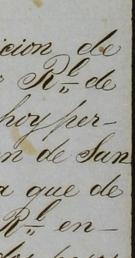 icion de
Rl de
hoy per-
n de San
a que de
Rl en-